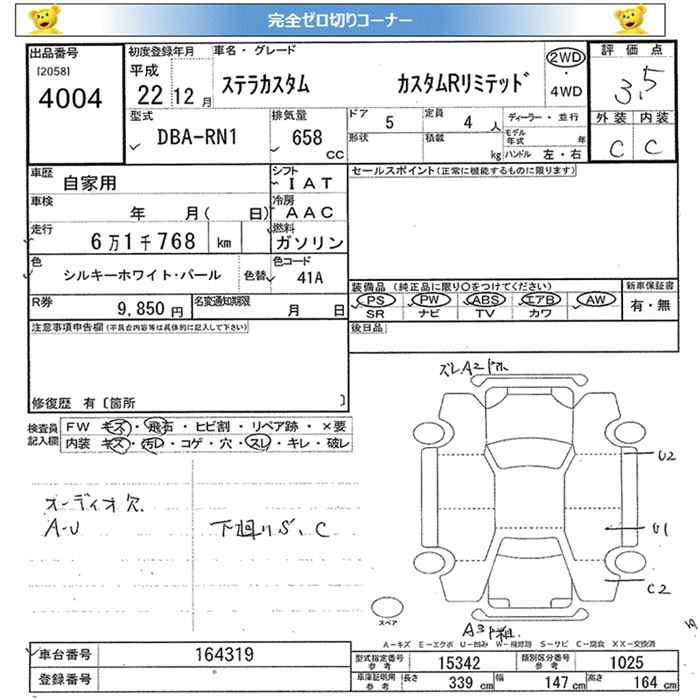 完全ゼロ切りコーナー
出品番号
[2058]
4004
初度登録年月
平成
22 12 月
車名・グレード
ステラカスタム カスタムRリミテッド
2WD
・
4WD
評価点
3.5
外装 内装
C C
型式
DBA-RN1
排気量
658
CC
ドア 5
定員 4 人
形状
積載 kg
ディーラー・並行
モデル年式 年
ハンドル 左・右
車歴
自家用
シフト
IAT
車検
年 月( 日)
冷房
AAC
走行
6万1千768 km
燃料
ガソリン
色
シルキーホワイト・パール
色替
色コード
41A
R券
9,850 円
名変通知期限
月 日
セールスポイント(正常に機能するものに限ります)
装備品 (純正品に限り○をつけてください)
PS PW ABS エアB AW
SR ナビ TV カワ
新車保証書
有・無
後日品
注意事項申告欄(不具合内容等は具体的に記入して下さい)
修復歴 有〔箇所 〕
検査員記入欄
FW キズ・飛石・ヒビ割・リペア跡・×要
内装 キズ・汚レ・コゲ・穴・スレ・キレ・破レ
オーディオ欠
A-U
下廻りS、C
ズレA2ドホ
U2
U1
C2
スペア
A3ド粗
A-キズ E-エクボ U-凹み W-補修跡 S-サビ C-腐食 XX-交換済
車台番号
164319
登録番号
型式指定番号 参考
15342
類別区分番号 参考
1025
車庫証明用 参考
長さ 339 cm
幅 147 cm
高さ 164 cm